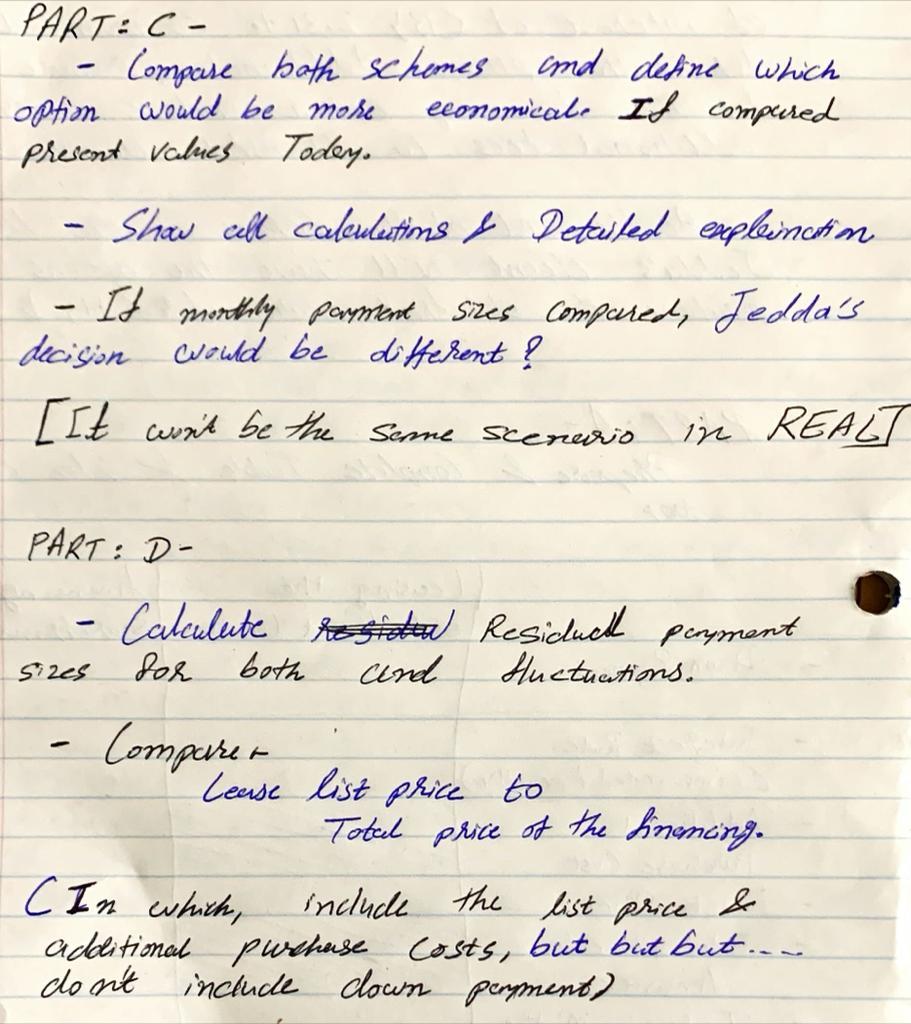 PART: C -
- Compare both schemes and define which
option would be more economical. If compared
present values Today.
- Show all calculations & Detailed explaination
- If monthly payment sizes compared, Jedda's
decision would be different?
[It won't be the same scenerio in REAL]
PART: D -
- Calculate residual Residuall payment
sizes for both and fluctuations.
- Compare
Lease list price to
Total price of the financing.
(In which, include the list price &
additional purchase costs, but but but....
don't include down payment)